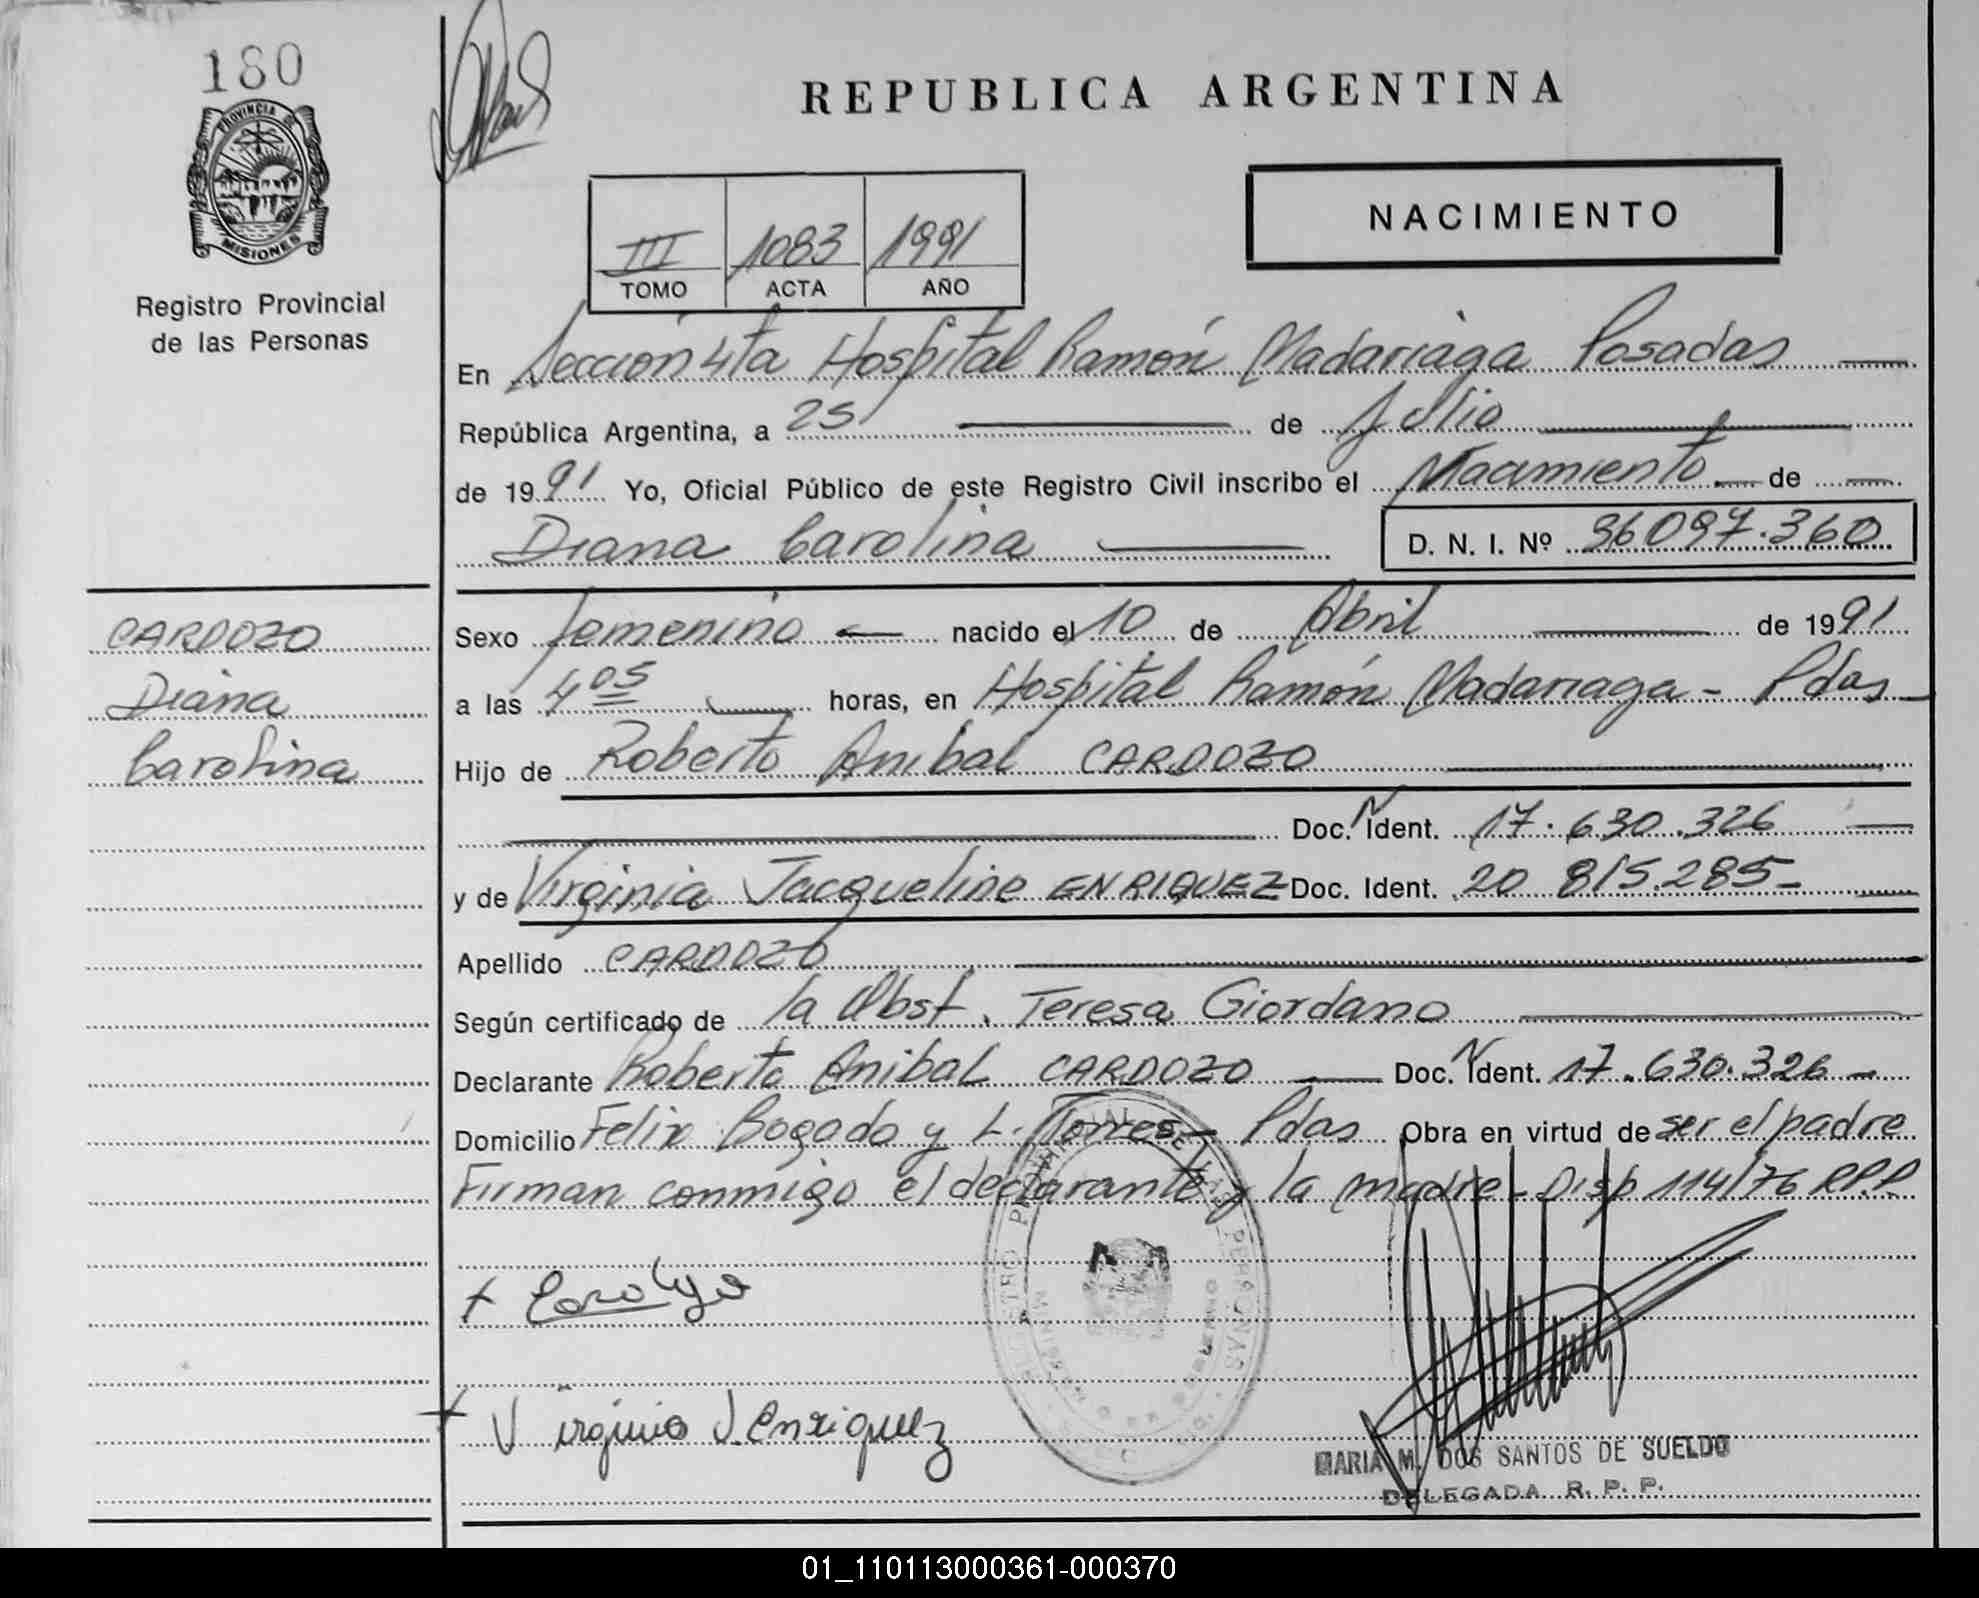 180
PROVINCIA DE
MISIONES
Registro Provincial
de las Personas
REPUBLICA ARGENTINA
III 1083 1991
TOMO ACTA AÑO
NACIMIENTO
En Sección 4ta Hospital Ramón Madariaga Posadas
República Argentina, a 25 de Julio
de 1991 Yo, Oficial Público de este Registro Civil inscribo el Nacimiento de
Diana Carolina D. N. I. Nº 36 097.360
CARDOZO
Diana
Carolina
Sexo femenino nacido el 10 de Abril de 1991
a las 4 05 horas, en Hospital Ramón Madariaga - Pdas
Hijo de Roberto Anibal CARDOZO
Doc. Ident. 17.630.326
y de Virginia Jacqueline ENRIQUEZ Doc. Ident. 20 815.285-
Apellido CARDOZO
Según certificado de la Obst. Teresa Giordano
Declarante Roberto Anibal CARDOZO Doc. Ident. 17.630.326 -
Domicilio Felix Bogado y L. Torres - Pdas Obra en virtud de ser el padre
Firman conmigo el declarante y la madre - Disp 114/76 RP.P
Virginia J. Enriquez
MARIA M. DOS SANTOS DE SUELDO
DELEGADA R. P. P.
01_110113000361-000370